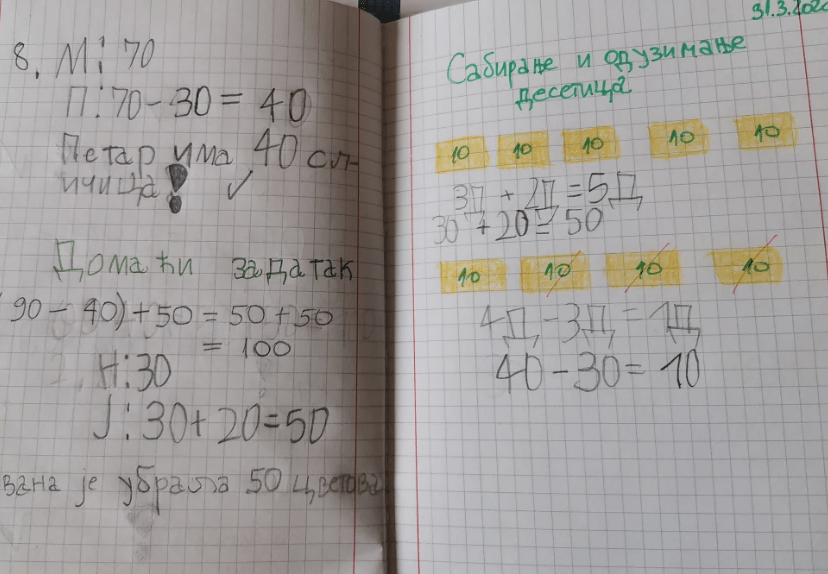 8. М: 70
П: 70 - 30 = 40
Петар има 40 сл-
ичица!
Домаћи задатак
90 - 40) + 50 = 50 + 50
= 100
Н: 30
Ј: 30 + 20 = 50
вана је убрала 50 цветова
31.3.202
Сабирање и одузимање
десетица
10 10 10 10 10
3Д + 2Д = 5Д
30 + 20 = 50
10 10 10 10
4Д - 3Д = 1Д
40 - 30 = 10